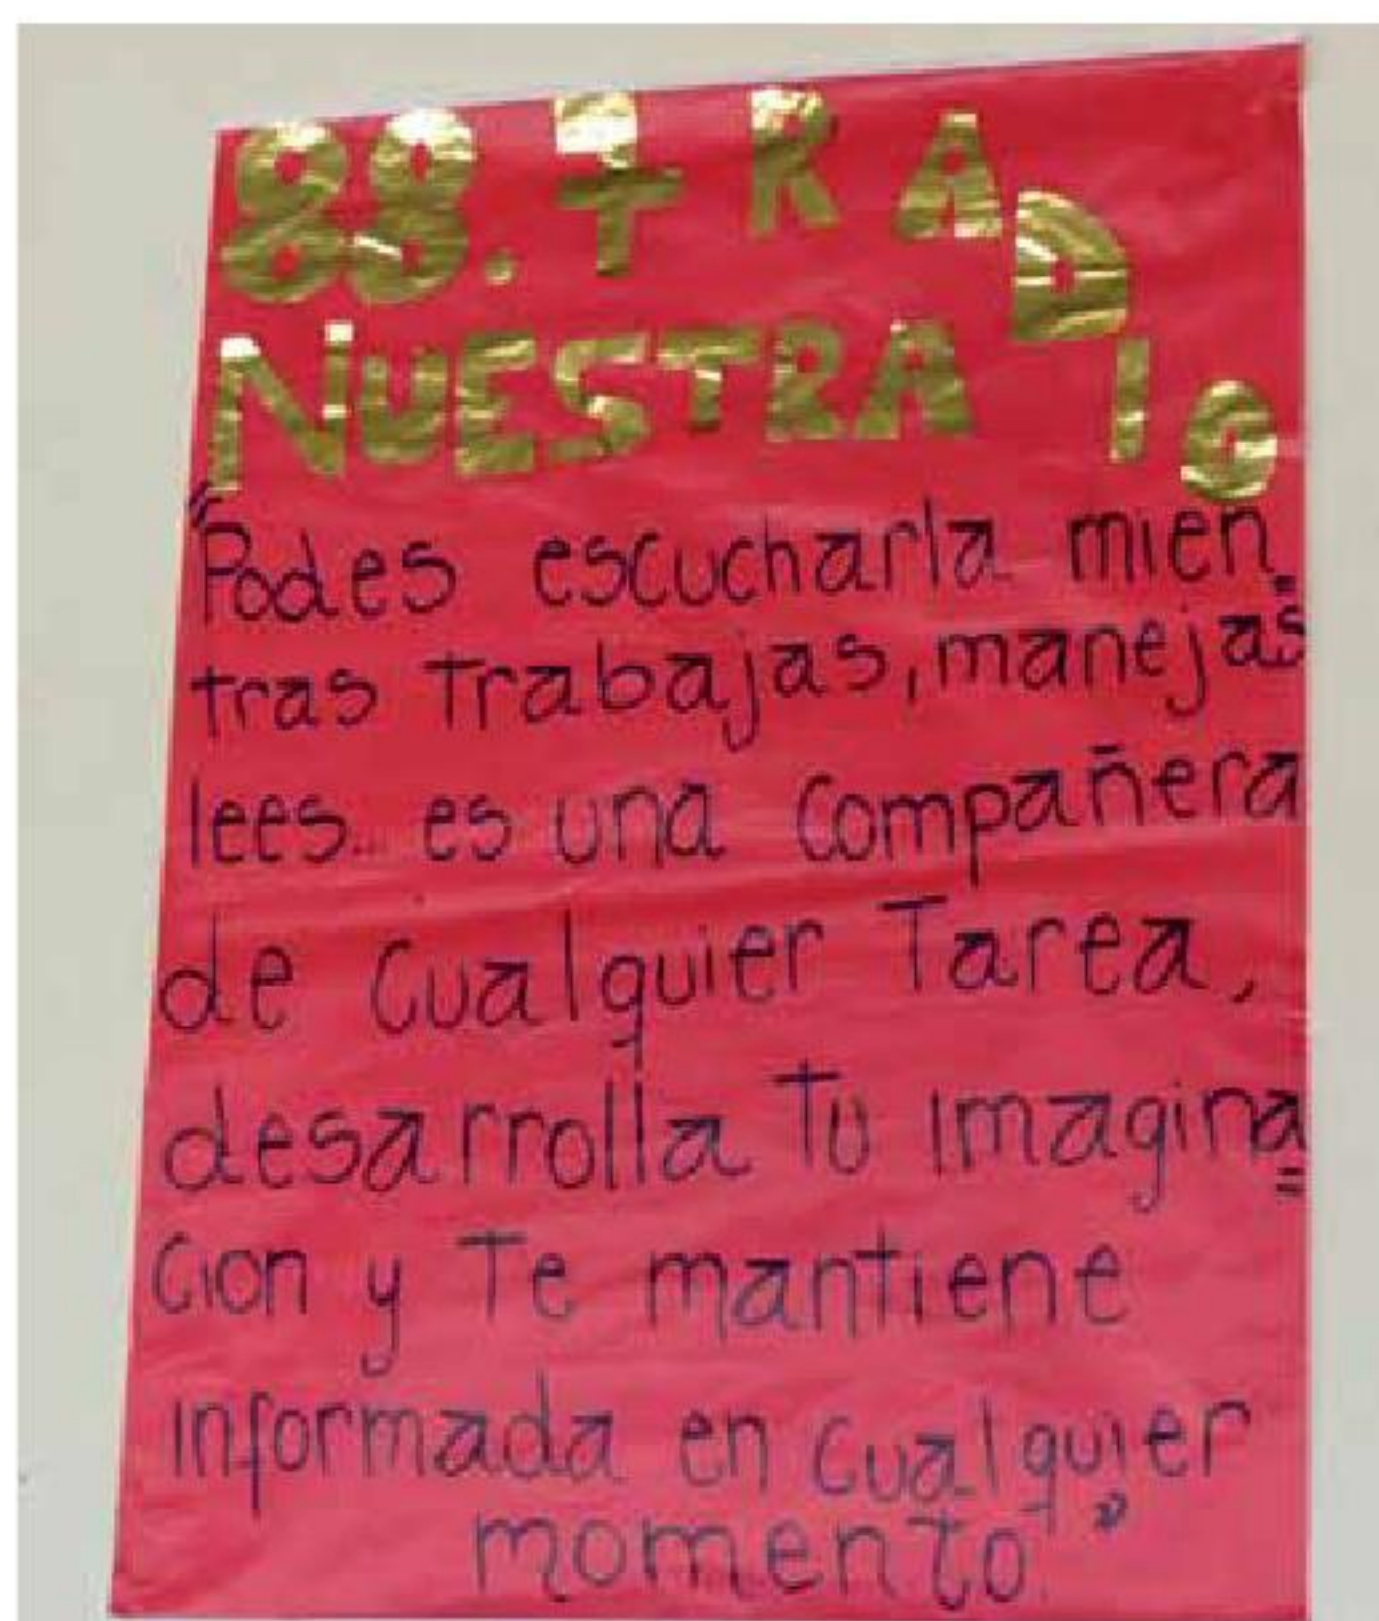 88.7 RADIO
NUESTRA
"Podes escucharla mien=
tras Trabajas, manejas
lees... es una compañera
de cualquier Tarea,
desarrolla Tu imagina=
cion y Te mantiene
informada en cualquier
momento."